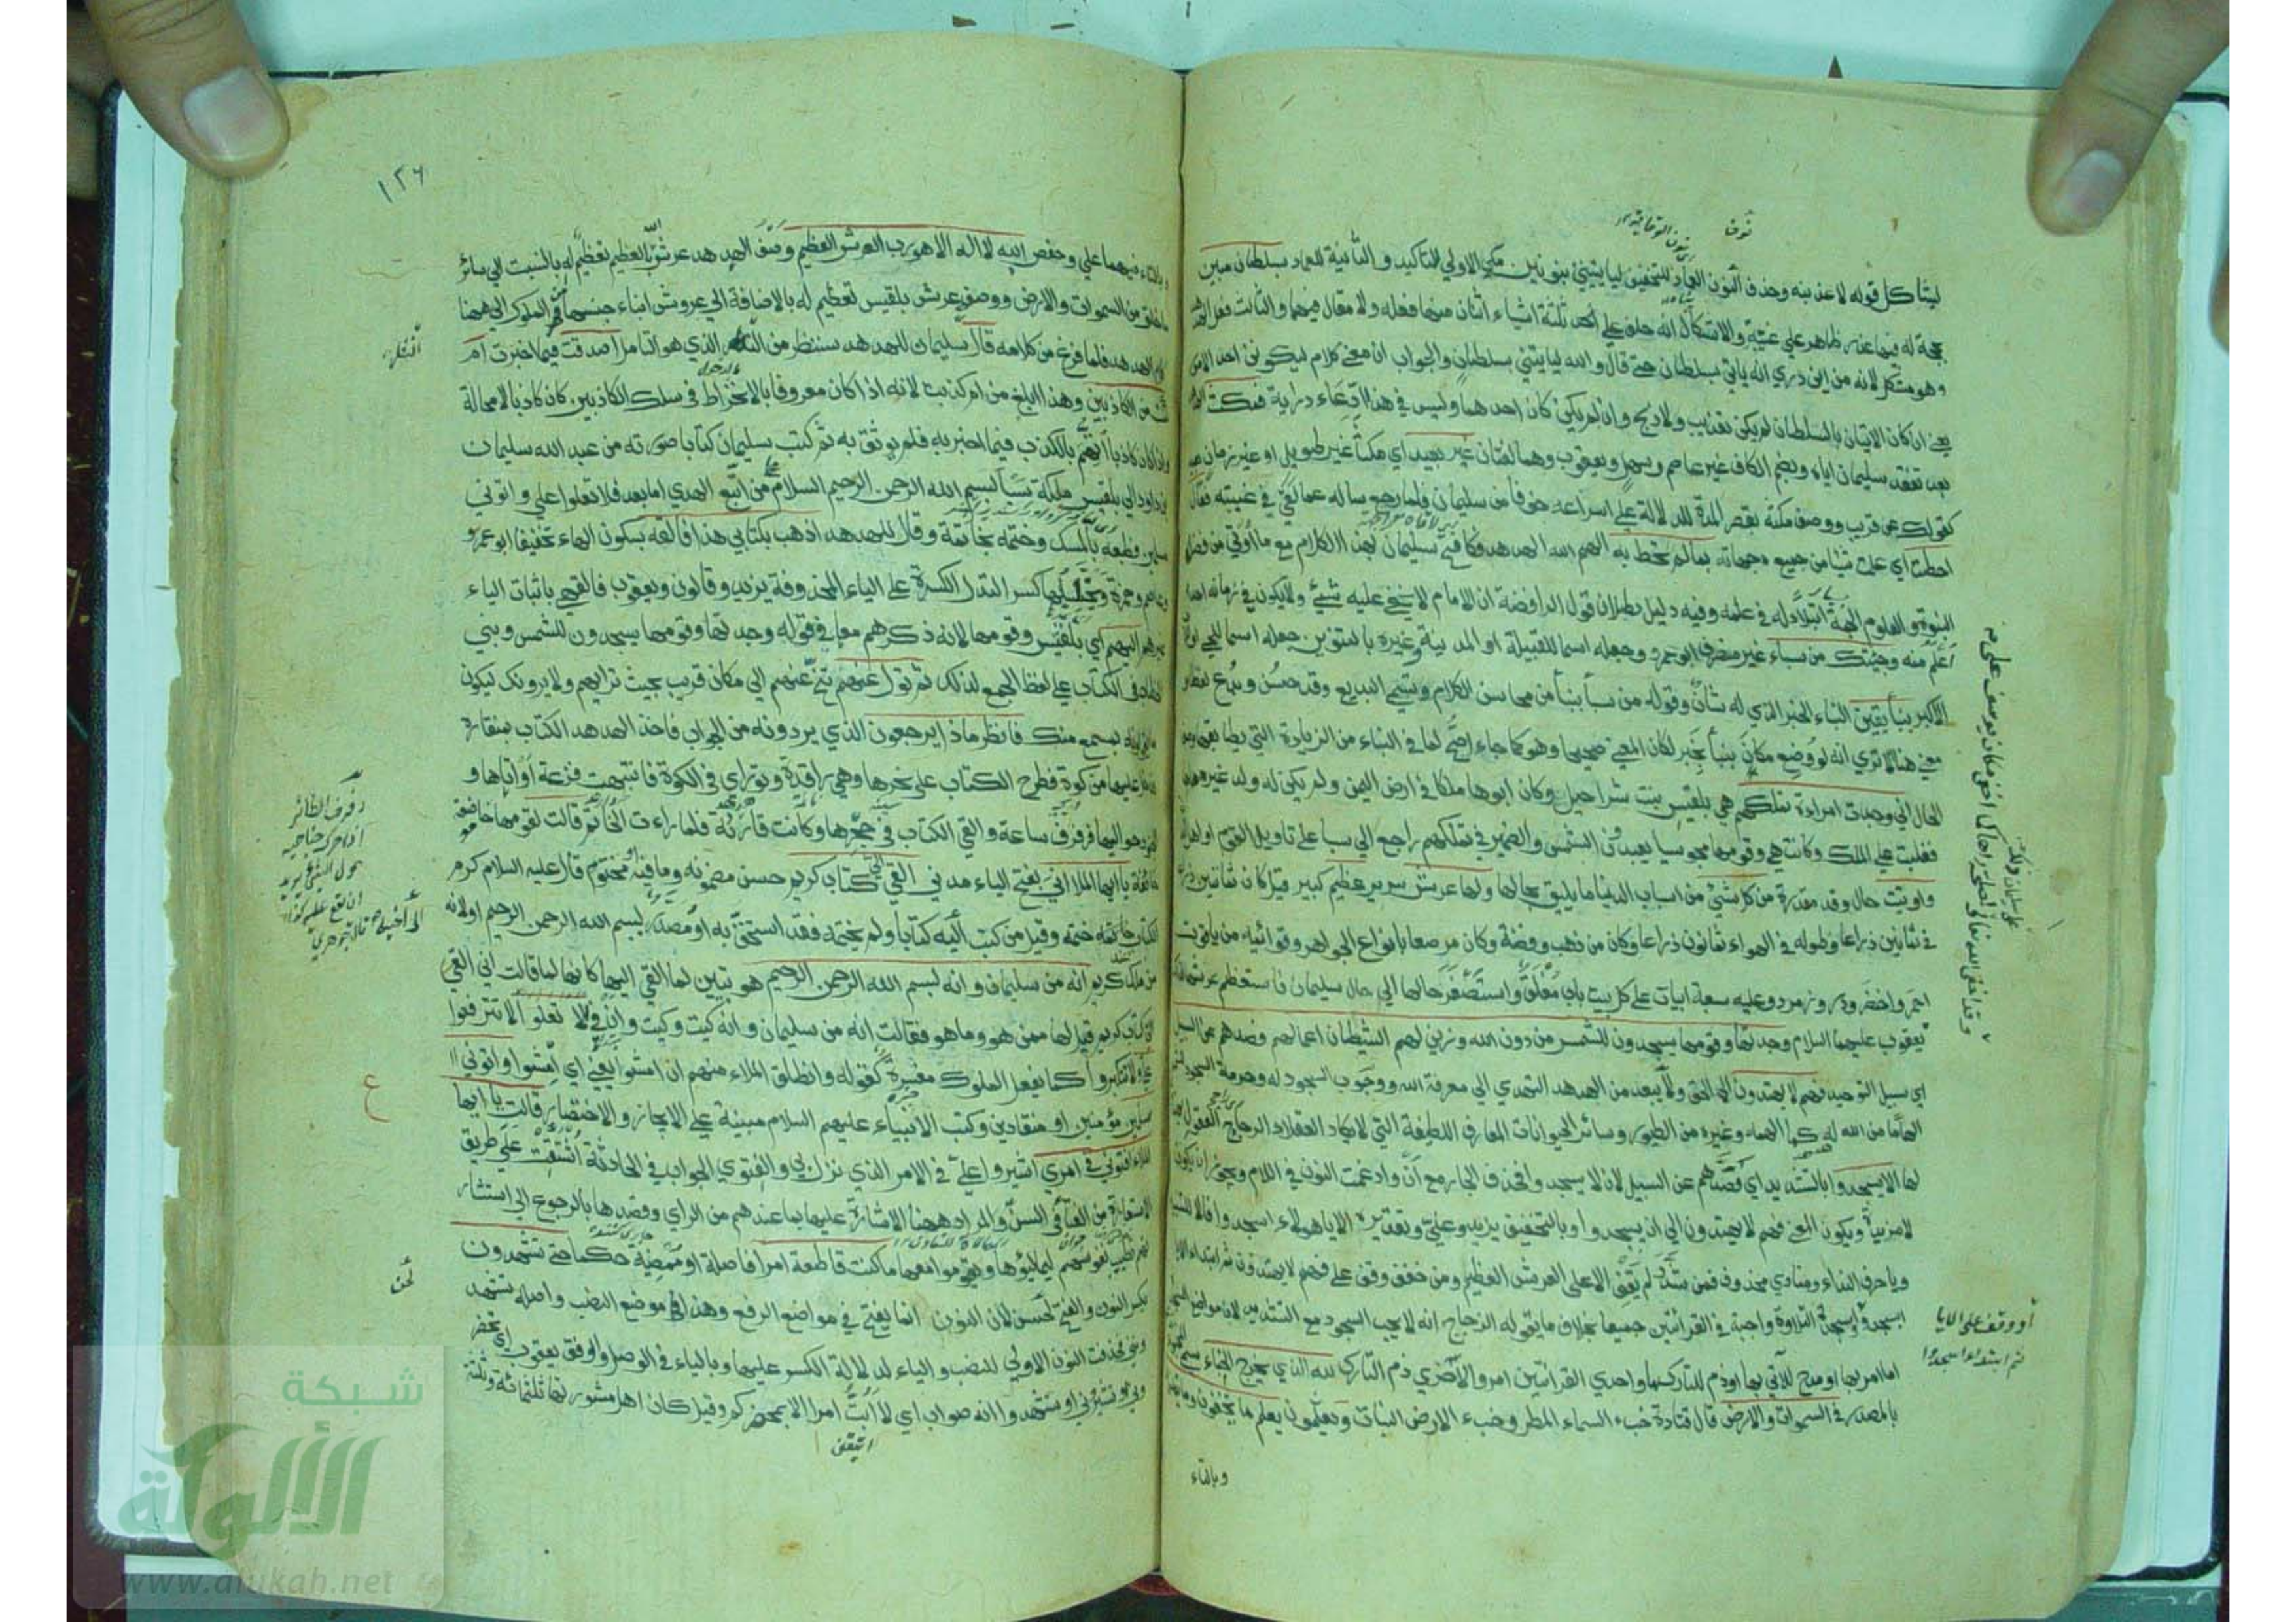 ليشاكل قوله لاعذبنه وحذف النون العماد للتخفيف ليأتينني بنونين مكي الاولي للتاكيد والثانية للعماد بسلطان مبين
بحجة له فيها عذر ظاهر علي غيبته والاشكال انه حلف علي احد ثلثة اشياء اثنان منها فعله ولا مقال فيهما والثالث فعل الهدهد
وهو مشكل لانه من اين دري انه ياتي بسلطان حتي قال والله ليأتيني بسلطان والجواب ان معني كلامه ليكونن احد الامور
يعني ان كان الاتيان بالسلطان لم يكن تعذيب ولا ذبح وان لم يكن كان احدهما وليس في هذا ادعاء دراية فمكث الهدهد
بعد تفقد سليمان اياه وبضم الكاف غير عاصم وسهل ويعقوب وهما لغتان غير بعيد اي مكثا غير طويل او غير زمان بعيد
كقولك عن قريب ووصف مكثه بقصر المدة للدلالة علي اسراعه خوفا من سليمان فلما رجع ساله عما لقي في غيبته فقال
احطت اي علمت شيئا من جميع جهاته بما لم تحط به الهم الله الهدهد فكافح سليمان بهذا الكلام مع ما اوتي من فضل
النبوة والعلوم الجمة ابتلاء له في علمه وفيه دليل بطلان قول الرافضة ان الامام لا يخفي عليه شيء ولا يكون في زمانه احد
اعلم منه وجئتك من سباء غير منصرف ابو عمرو وجعله اسما للقبيلة او المدينة وغيره بالتنوين جعله اسما للحي او الاب
الاكبر بنبأ يقين النباء الخبر الذي له شأن وقوله من سبأ بنبأ من محاسن الكلام ويسمي البديع وقد حسن وبدع لفظا و
معني هنا الا تري انه لو وضع مكان بنبأ بخبر لكان المعني صحيحا وهو كما جاء اصح لما في النباء من الزيادة التي يطابقها وصف
الحال اني وجدت امراءة تملكهم هي بلقيس بنت شراحيل وكان ابوها ملكا في ارض اليمن ولم يكن له ولد غيرها
فغلبت علي الملك وكانت هي وقومها مجوسيا يعبدون الشمس والضمير في تملكهم راجع الي سبا علي تاويل القوم او اهل
واوتيت حال وقد مقدرة من كل شيء من اسباب الدنيا ما يليق بحالها ولها عرش سرير عظيم كبير قيل كان ثمانين ذراعا
في ثمانين ذراعا وطوله في الهواء ثمانون ذراعا وكان من ذهب وفضة وكان مرصعا بانواع الجواهر وقوائمه من ياقوت
احمر واخضر ودر وزمرد وعليه سبعة ابيات علي كل بيت باب مغلق واستصغر حالها الي حال سليمان فاستعظم عرشها
يعقوب عليهما السلام وجدتها وقومها يسجدون للشمس من دون الله وزين لهم الشيطان اعمالهم فصدهم عن السبيل
اي سبيل التوحيد فهم لا يهتدون الي الحق ولا يبعد من الهدهد التهدي الي معرفة الله ووجوب السجود له وحرمة السجود
الهاما من الله له كما الهمه وغيره من الطيور وسائر الحيوانات المعارف اللطيفة التي لا يكاد العقلاء الرجاح العقول
لها الا يسجدوا بالتشديد اي فصدهم عن السبيل لان لا يسجدوا فحذف الجار مع ان وادغمت النون في اللام ويجوز ان يكون
لا مزيدا ويكون المعني فهم لا يهتدون الي ان يسجدوا وبالتخفيف يزيد وعلي وتقديره الا يا هولاء اسجدوا فالا للتنبيه
ويا حرف النداء ومنادي محذوف فمن شدد لم يقف الا علي العرش العظيم ومن خفف وقف علي فهم لا يهتدون ثم ابتداء الا يا
اسجدوا وسجدة التلاوة واجبة في القرائتين جميعا بخلاف ما يقوله الزجاج انه لا يجب السجود مع التشديد لان مواضع السجدة
اما امر بها او مدح للآتي بها او ذم للتارك لها واحدي القرائتين امر والاخري ذم التارك لله الذي يخرج الخباء سمي المخبوء
بالمصدر في السموات والارض قال قتادة خبء السماء المطر وخبء الارض النبات ويعلمون يعلم ما يخفون وما يعلنون
وبالتاء
او وقف علي الايا
ثم ابتداء اسجدوا
١٢٦
وبالتاء فيهما علي وحفص الله لا اله الا هو رب العرش العظيم وصف الهدهد عرش الله العظيم تعظيم له بالنسبت الي سائر
ما خلق من السموات والارض ووصفه عرش بلقيس تعظيم له بالاضافة الي عروش ابناء جنسها من الملوك الي ههنا
كلام الهدهد فلما فرغ من كلامه قال سليمان للهدهد سننظر من النظر الذي هو التامل اصدقت فيما اخبرت ام
كنت من الكاذبين وهذا ابلغ من ام كذبت لانه اذا كان معروفا بالانخراط في سلك الكاذبين كان كاذبا لا محالة
واذا كان كاذبا اتهم بالكذب فيما اخبر به فلم يوثق به ثم كتب سليمان كتابا صورته من عبد الله سليمان
بن داود الي بلقيس ملكة سبأ بسم الله الرحمن الرحيم السلام علي من اتبع الهدي اما بعد فلا تعلوا علي واتوني
مسلمين وطبعه بالمسك وختمه بخاتمه وقال للهدهد اذهب بكتابي هذا فالقه بسكون الهاء تخفيفا ابو عمرو
وعاصم وحمزة ويختلسها كسرا لتدل الكسرة علي الياء المحذوفة يزيد وقالون ويعقوب فالقهي باثبات الياء
غيرهم اليهم الي بلقيس وقومها لانه ذكرهم معها في قوله وجدتها وقومها يسجدون للشمس وبني
الخطاب في الكتاب علي لفظ الجمع لذلك ثم تول عنهم تنح عنهم الي مكان قريب بحيث تراهم ولا يرونك ليكون
ما يقولونه بمسمع منك فانظر ماذا يرجعون الذي يردونه من الجواب فاخذ الهدهد الكتاب بمنقاره
ودخل عليها من كوة فطرح الكتاب علي نحرها وهي راقدة وتواري في الكوة فانتبهت فزعة او اتاها و
الجنود حواليها فرفرف ساعة والقي الكتاب في حجرها وكانت قارئة فلما راءت الخاتم قالت لقومها خاضعة
خائفة يا ايها الملا اني بفتح الياء مدني القي الي كتاب كريم حسن مضمونه وما فيه او مختوم قال عليه السلام كرم
الكتاب ختمه وقيل من كتب اليه كتابا ولم يختمه فقد استخف به او مصدر ببسم الله الرحمن الرحيم او لانه
من ملك كريم انه من سليمان وانه بسم الله الرحمن الرحيم هو تبيين لما القي اليها كانها لما قالت اني القي
الي كتاب كريم قيل لها ممن هو وما هو فقالت انه من سليمان وانه كيت وكيت وان في الا تعلوا لا تترفعوا
علي ولا تتكبروا كما يفعل الملوك مفسرة كقوله وانطلق الملاء منهم ان امشوا يعني اي امشوا واتوني
مسلمين مؤمنين او منقادين وكتب الانبياء عليهم السلام مبنية علي الايجاز والاختصار قالت يا ايها
الملاء افتوني في امري اشيروا علي في الامر الذي نزل بي والفتوي الجواب في الحادثة اشتقت علي طريق
الاستعارة من الفتاء في السن والمراد ههنا الاشارة عليها بما عندهم من الراي وقصدها بالرجوع الي استشار
تهم تطييب نفوسهم ليمالئوها ويقوموا معها ما كنت قاطعة امرا فاصلة او ممضية حكما حتي تشهدون
بكسر النون والفتح لحن لان النون انما يفتح في مواضع الرفع وهذا في موضع النصب واصله تشهد
ونني فحذفت النون الاولي للنصب والياء لدلالة الكسر عليها وبالياء في الوصل والوقف يعقوب اي تحضر
وني وتشيروني او تشهدوا انه صواب اي لا ابت امرا الا بمحضركم وقيل كان اهل مشورتها ثلثمائة وثلثة
رفرف الطائر
اذا حرك جناحيه
حول الشيء يريد
ان يقع عليه
قاله الجوهري
ع
لحن
شبكة
الألوكة
www.alukah.net